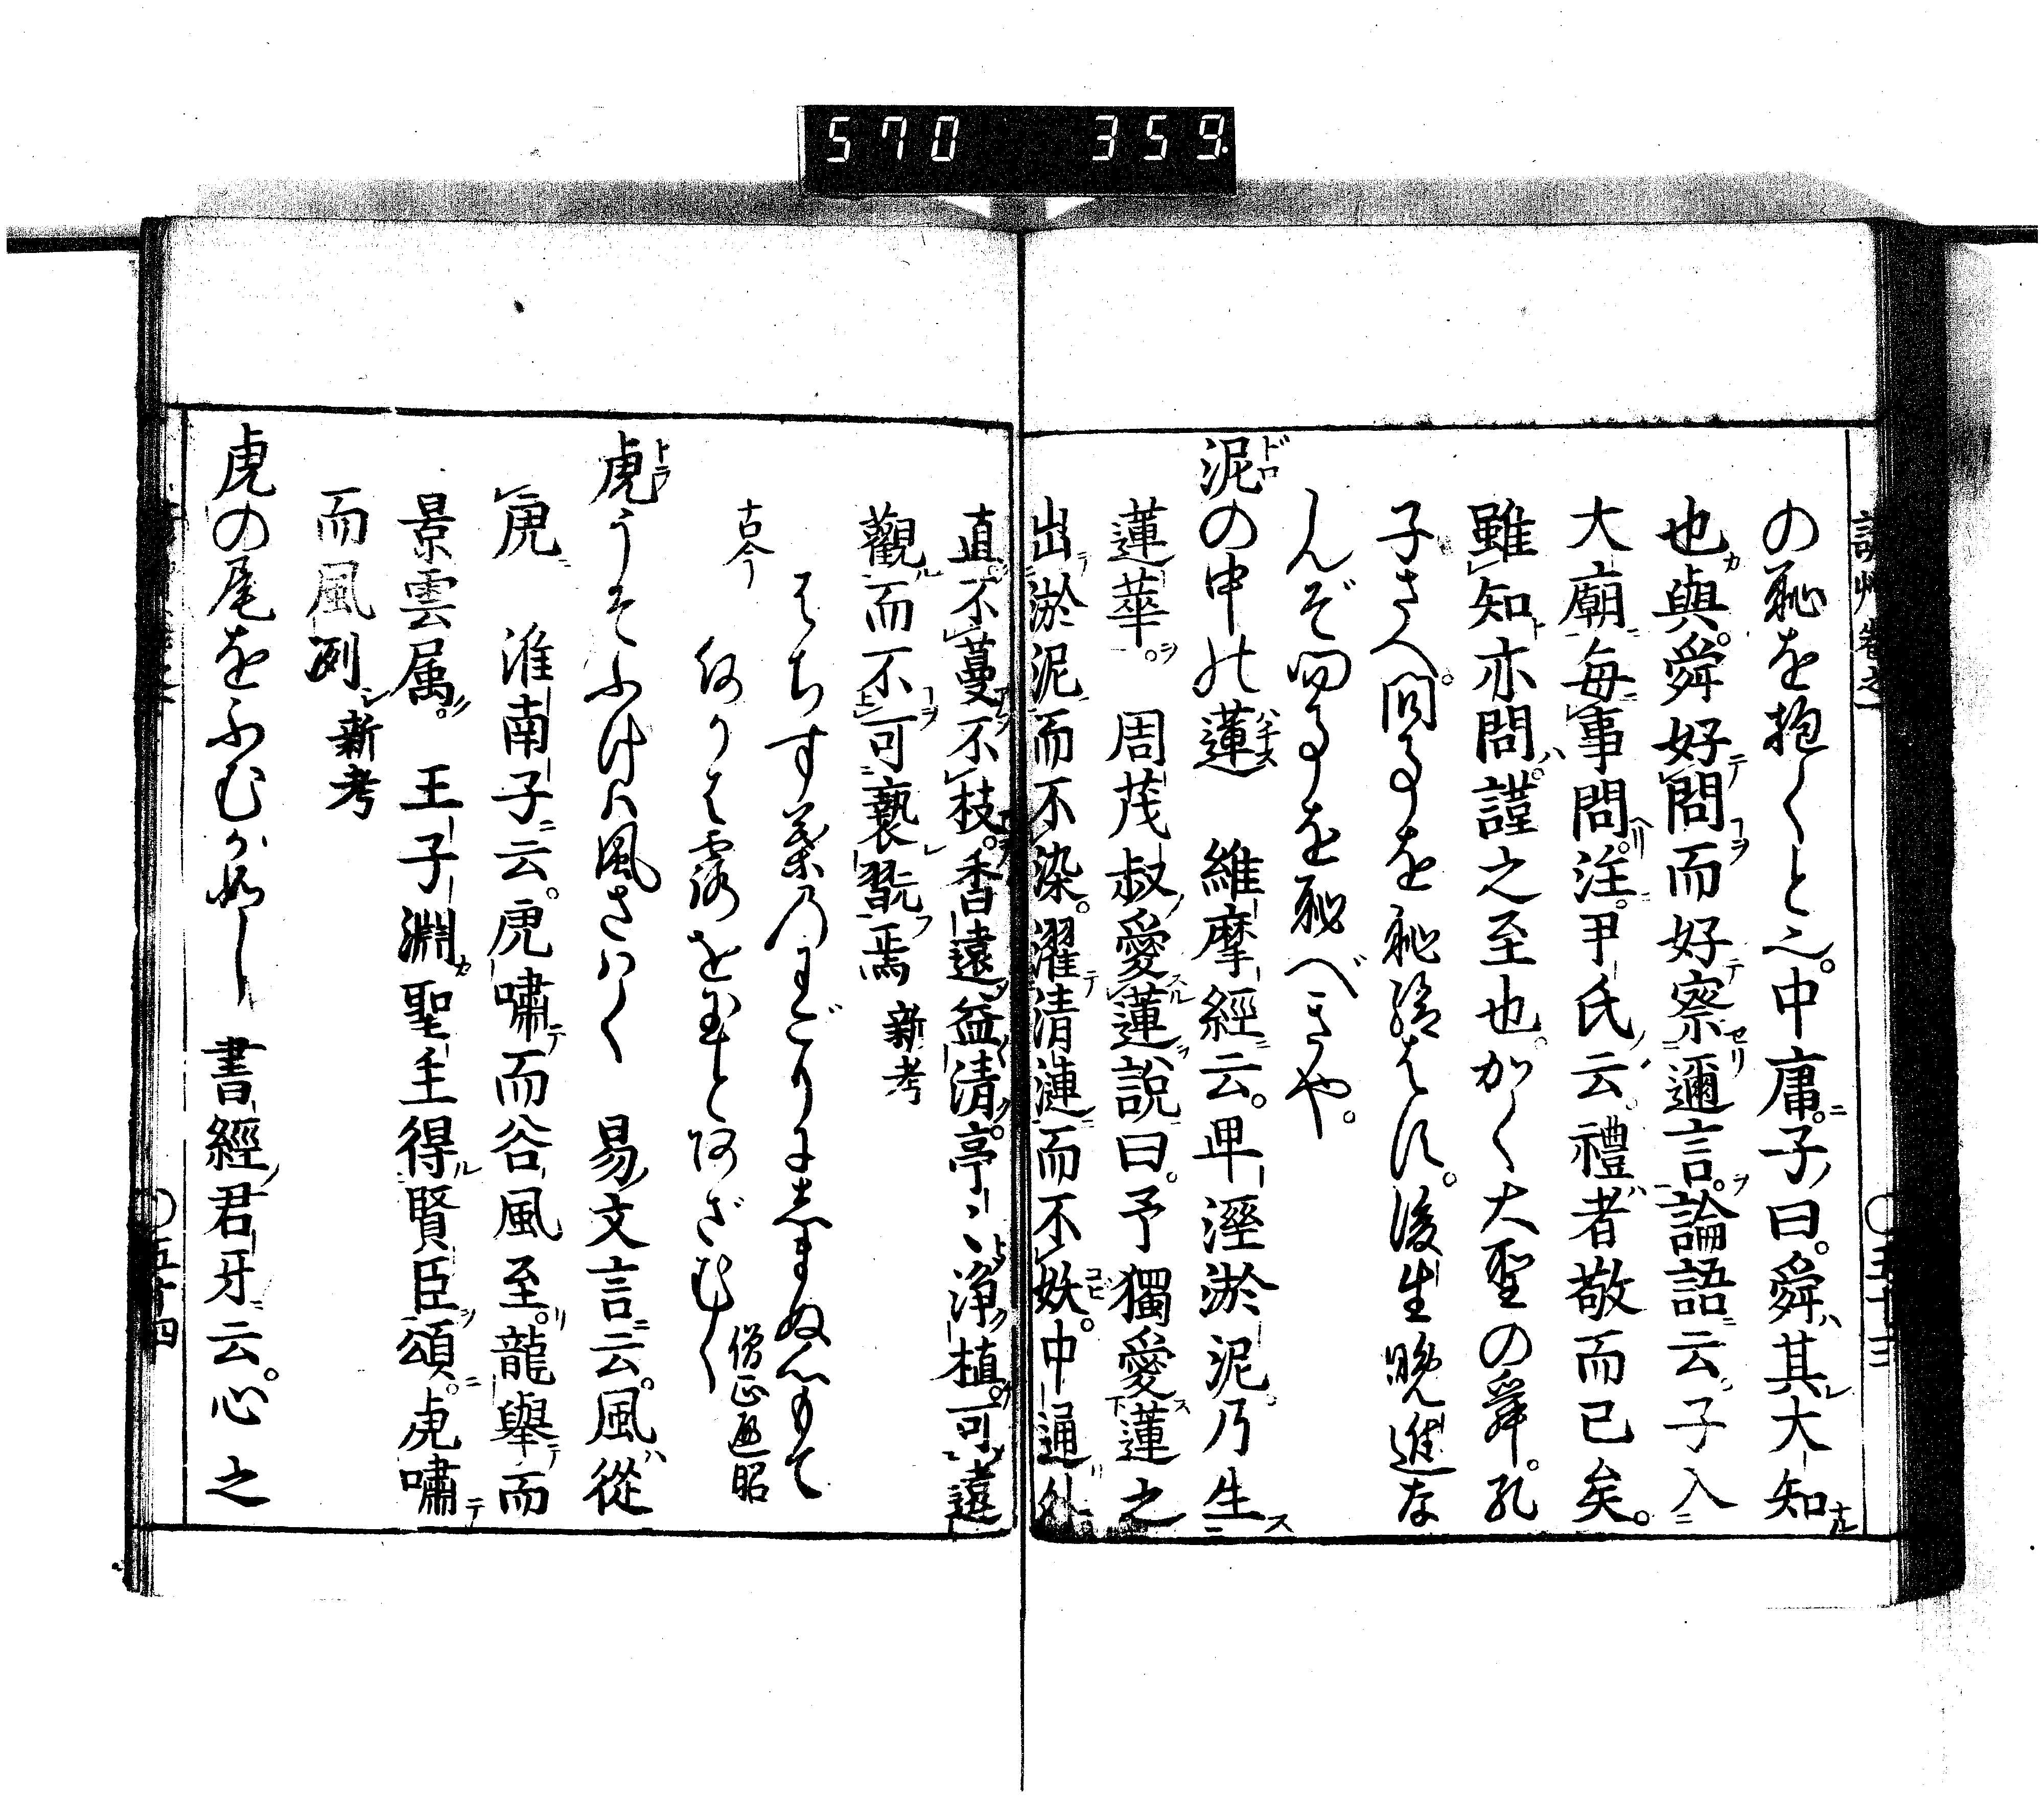 570 359
の恥を抱くと云。中庸子曰。舜其大知
也與。舜好問而好察邇言。論語云子入
大廟每事問。注。尹氏云禮者敬而已矣。
雖知亦問。謹之至也。かく大聖の舜。孔
子さへ。問事を恥給はず。後生晩進な
んぞ問事を恥べきや。
泥の中の蓮 維摩經云。卑溼淤泥乃生
蓮華。 周茂叔愛蓮說曰。予獨愛蓮之
出淤泥而不染。濯清漣而不妖。中通外
直。不蔓不枝。香遠益清。亭〻淨植。可遠
觀而不可褻翫焉 新考
はちす葉のにごりにしまぬ心もて
古今
何かは露を玉とあざむく 僧正遍昭
虎うそふけは風さはく 易文言云。風從
虎 淮南子云。虎嘯而谷風至。龍舉而
景雲属。 王子淵聖主得賢臣頌。虎嘯
而風冽 新考
虎の尾をふむか如し 書經君牙云。心之
五十三
五十四